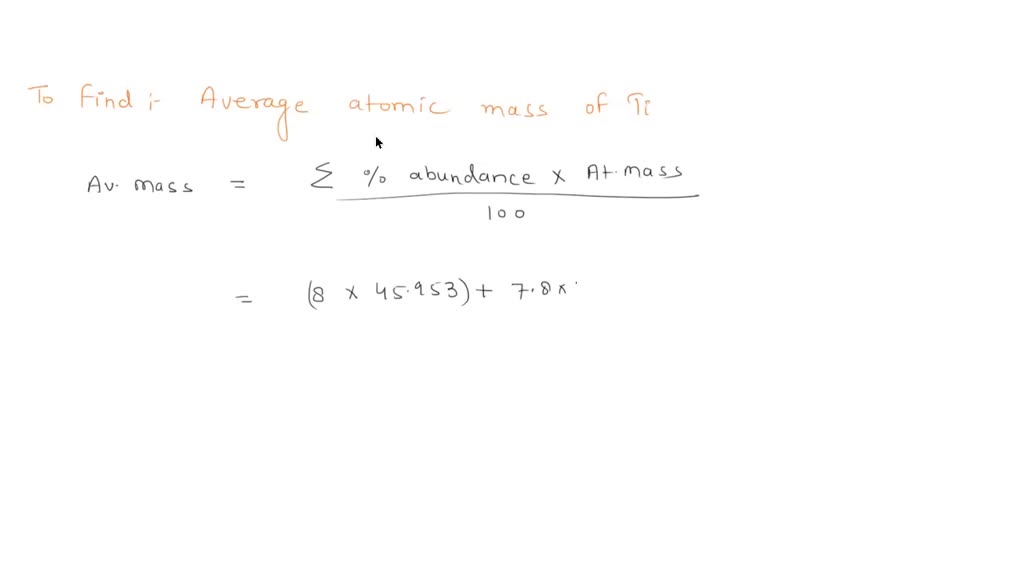 To Find :- Average atomic mass of Ti
Av. mass = Σ % abundance x At. mass
100
= (8 x 45.953) + 7.8 x